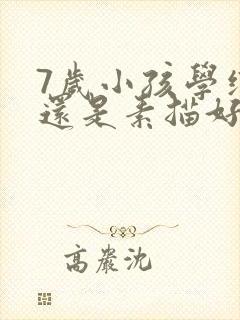 7歲小孩學
還是素描好
高嚴沈